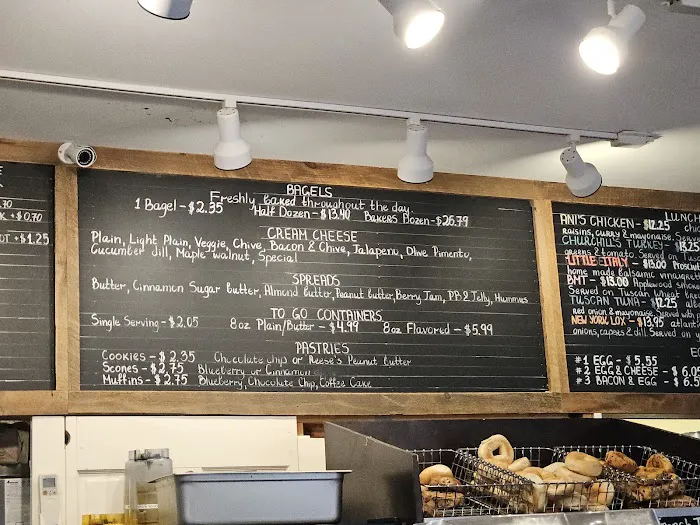 +$0.70
+$1.25
BAGELS
Freshly baked throughout the day
1 Bagel - $2.35 Half Dozen - $13.40 Bakers Dozen - $26.79
CREAM CHEESE
Plain, Light Plain, Veggie, Chive, Bacon & Chive, Jalapeno, Olive Pimento,
Cucumber dill, Maple walnut, Special
SPREADS
Butter, Cinnamon Sugar butter, Almond butter, Peanut butter, Berry Jam, PB & Jelly, Hummus
TO GO CONTAINERS
Single Serving - $2.05 8oz Plain/Butter - $4.99 8oz Flavored - $5.99
PASTRIES
Cookies - $2.35 Chocolate chip or Reese's Peanut butter
Scones - $2.75 Blueberry or Cinnamon
Muffins - $2.75 Blueberry, Chocolate Chip, Coffee Cake
LUNCH
ANI'S CHICKEN - $12.25
raisins, curry & mayonnaise.
CHURCHILL'S TURKEY
greens & tomato. Served on
LITTLE ITALY - $13.00
home made balsamic vinaigrette
BMT - $13.00 Applewood
Served on Tuscan wheat
TUSCAN TUNA - $12.25
red onion & mayonnaise. Served
NEW YORK LOX - $13.95
onions, capres & dill. Served on
#1 EGG - $5.55
#2 EGG & CHEESE - $6.0
#3 BACON & EGG - $6.5